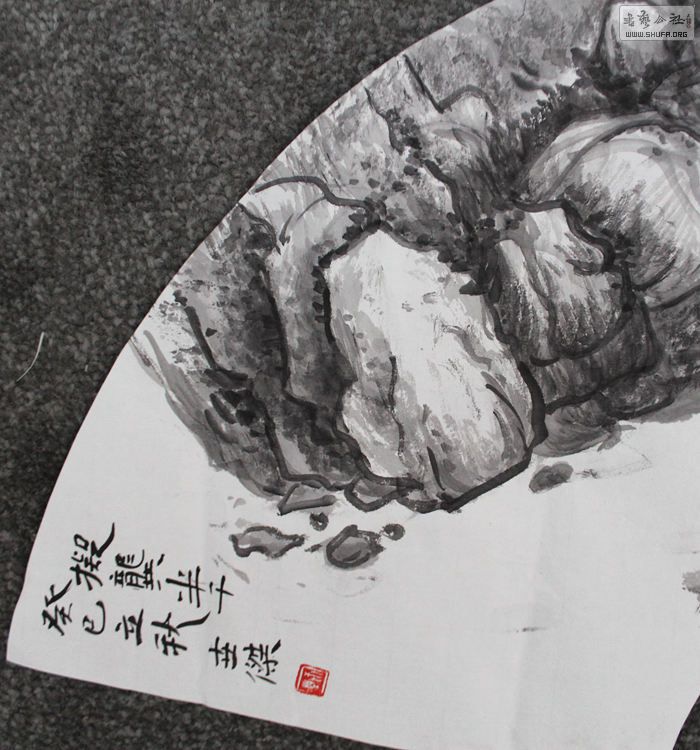 書藝公社
WWW.SHUFA.ORG
撰龔半千
癸巳立秋 世傑